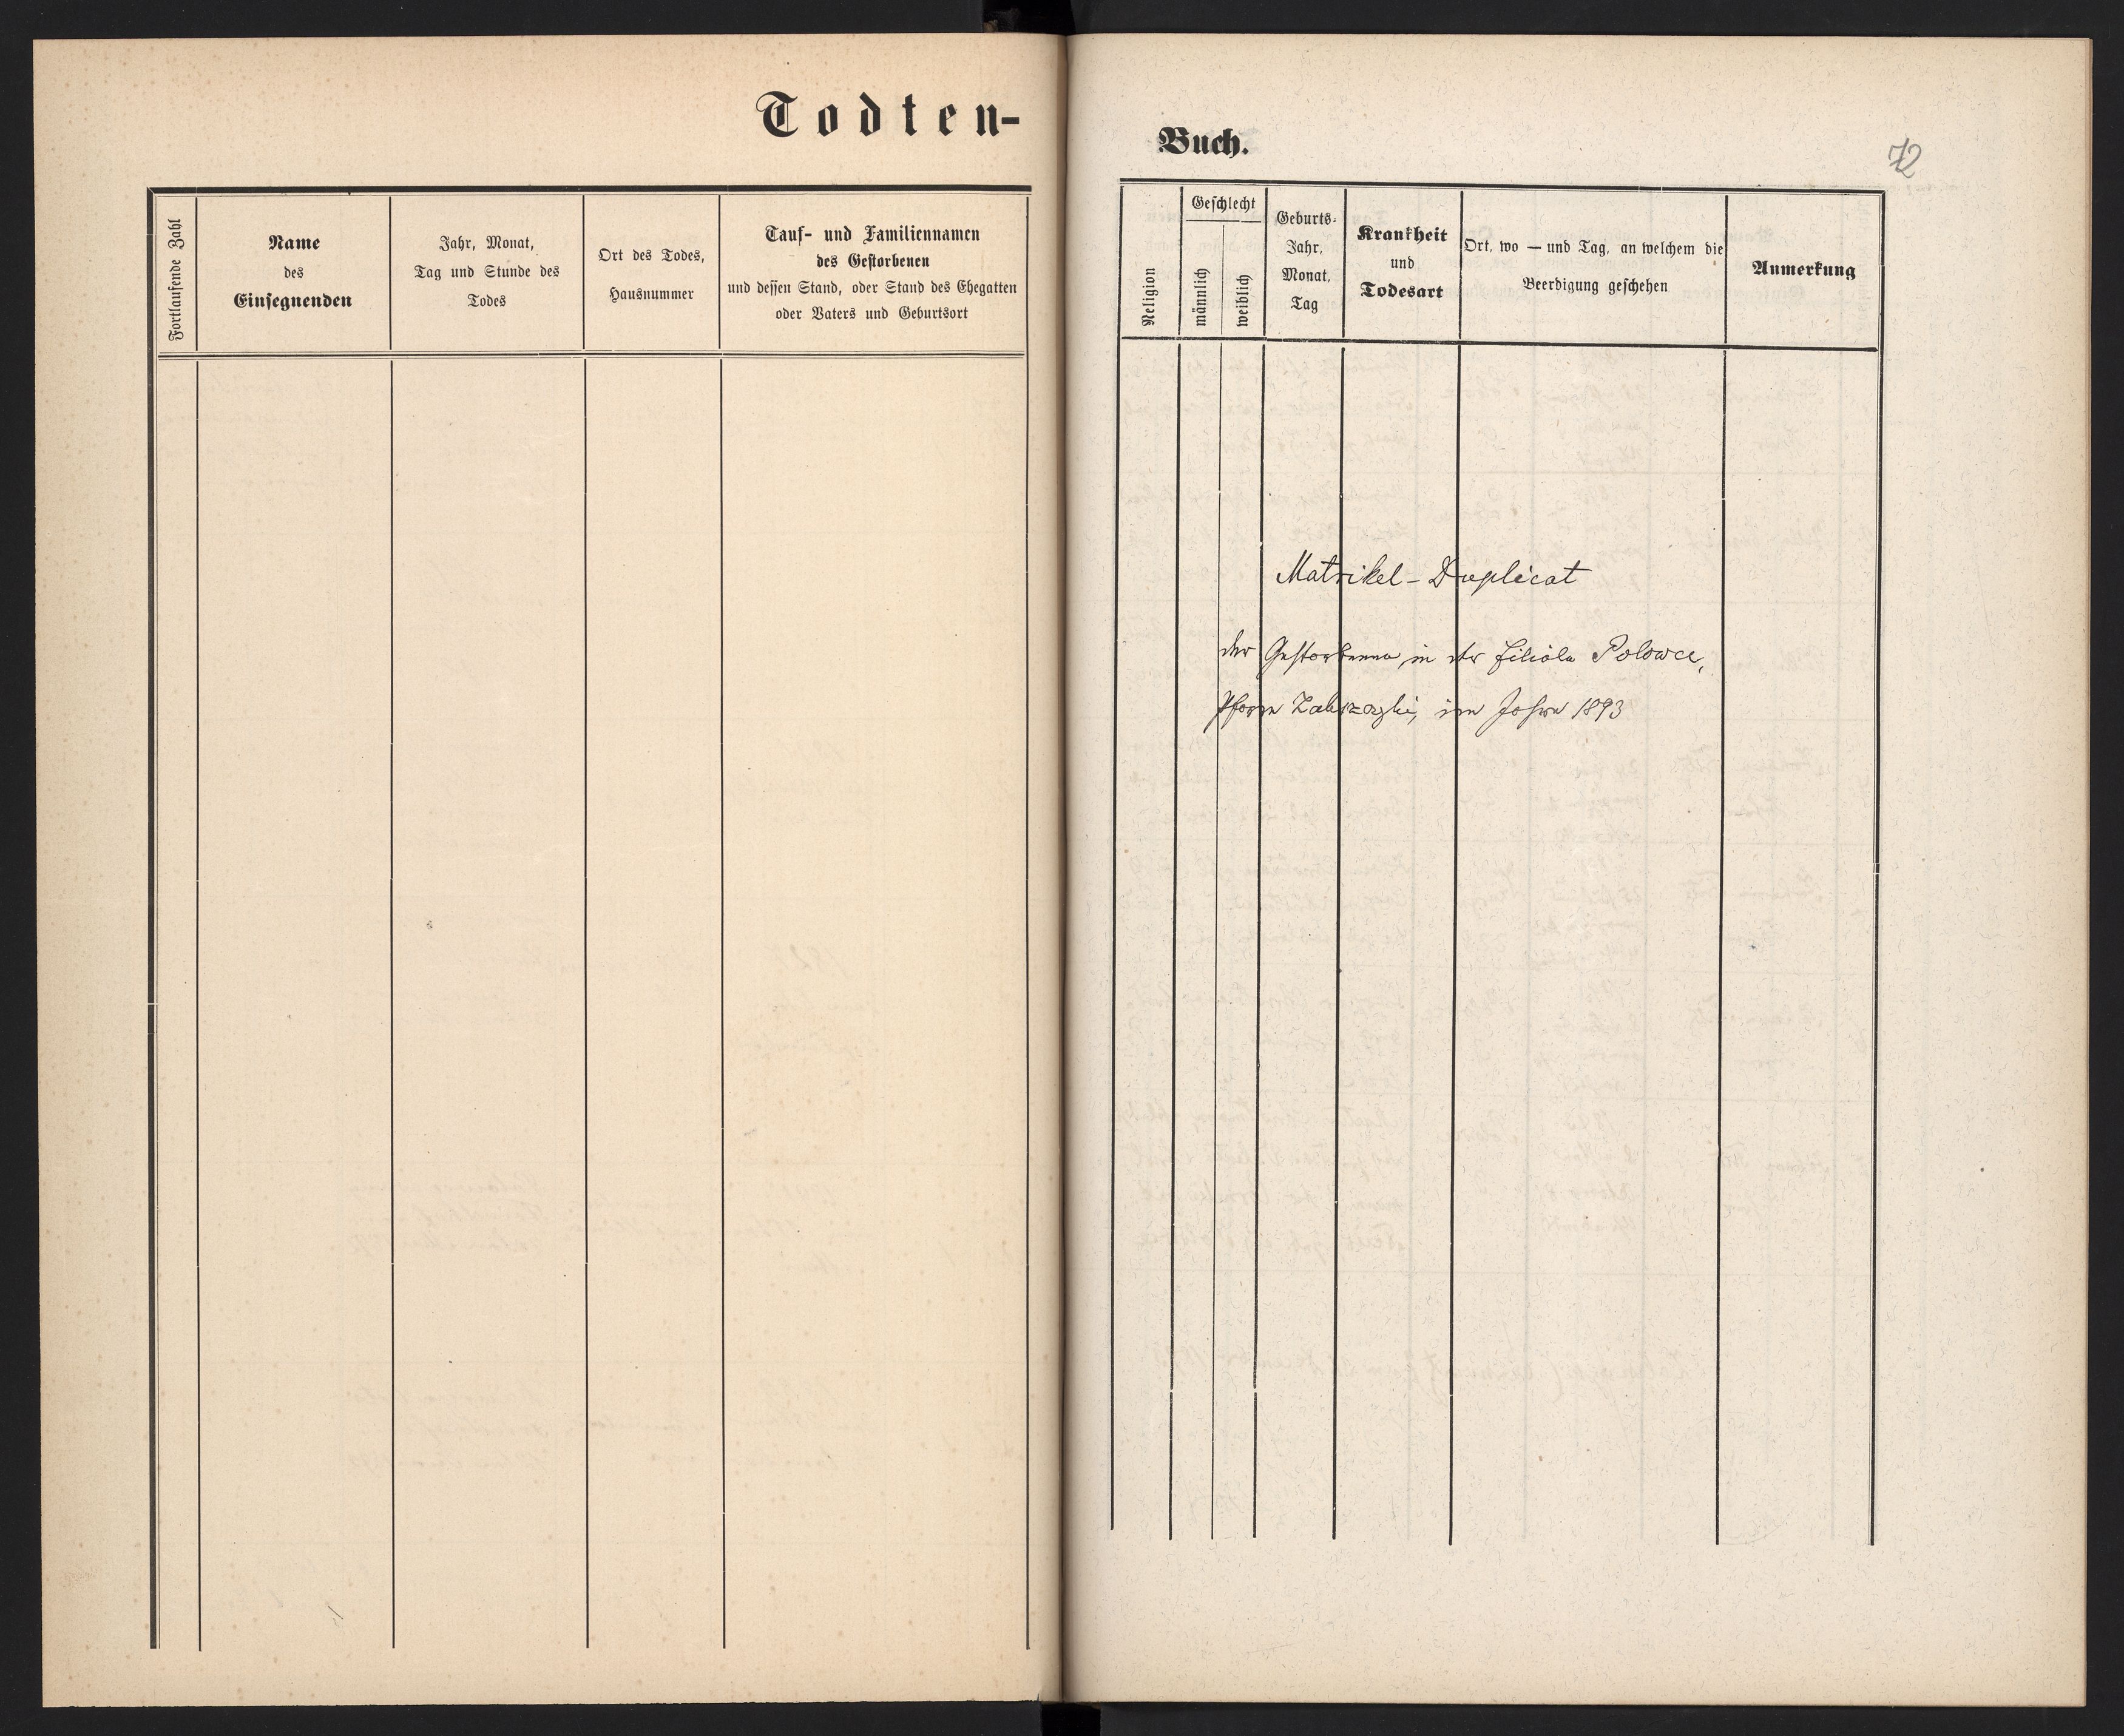 Todten-
Fortlaufende Zahl
Name
des
Einsegnenden
Jahr, Monat,
Tag und Stunde des
Todes
Ort des Todes,
Hausnummer
Tauf- und Familiennamen
des Gestorbenen
und dessen Stand, oder Stand des Ehegatten
oder Vaters und Geburtsort
Buch.
72
Religion
Geschlecht
männlich
weiblich
Geburts-
Jahr,
Monat,
Tag
Krankheit
und
Todesart
Ort, wo — und Tag, an welchem die
Beerdigung geschehen
Anmerkung
Matrikel-Duplicat
der Gestorbenen in der Filiale Polowce,
Pfarre Zalszczyki, im Jahre 1893